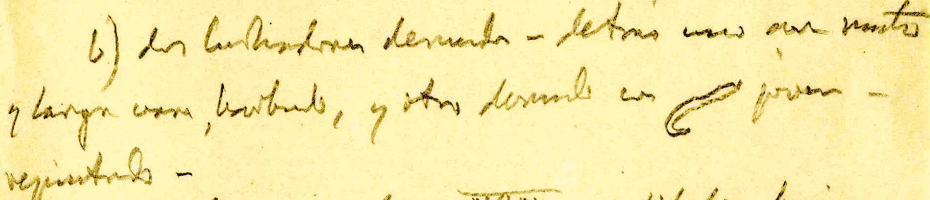 b) dos luchadores desnudos - detrás uno con manto
y larga vara, barbudo, y otro desnudo con joven -
repintado -